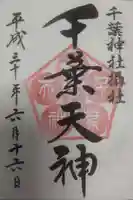 千葉神社摂社
千葉天神
平成三十年六月十六日